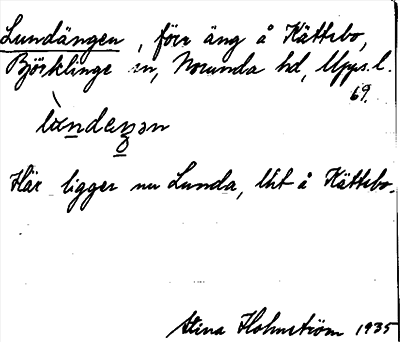 Lundängen, förr äng å Kättsbo,
Björklinge sn, Norunda hd, Upps. l.
69.
Här ligger nu Lunda, lht å Kättsbo.
Stina Holmström 1935